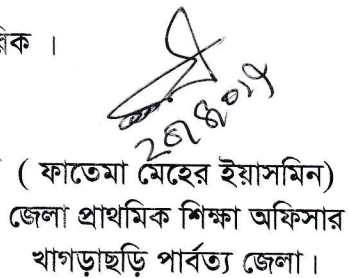 রিক ।
( ফাতেমা মেহের ইয়াসমিন)
জেলা প্রাথমিক শিক্ষা অফিসার
খাগড়াছড়ি পার্বত্য জেলা।